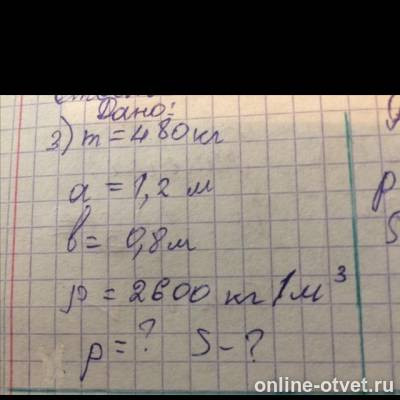 Дано:
3) m = 480 кг
a = 1,2 м
в = 0,8 м
ρ = 2600 кг/м³
p = ? S - ?
p
S
online-otvet.ru